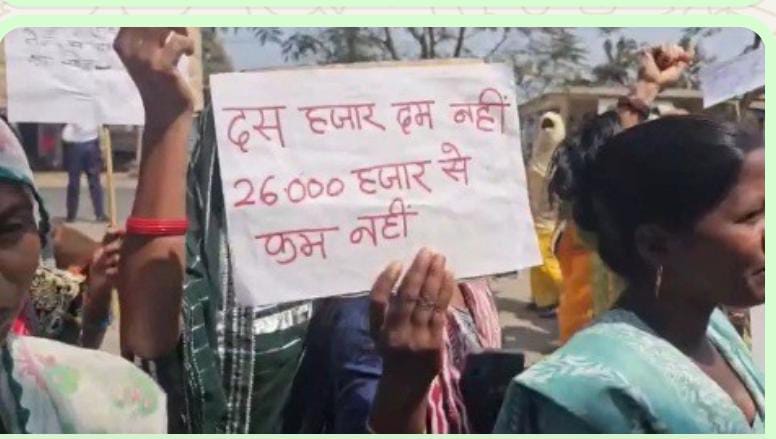 दस हजार दम नहीं
26000 हजार से
कम नहीं